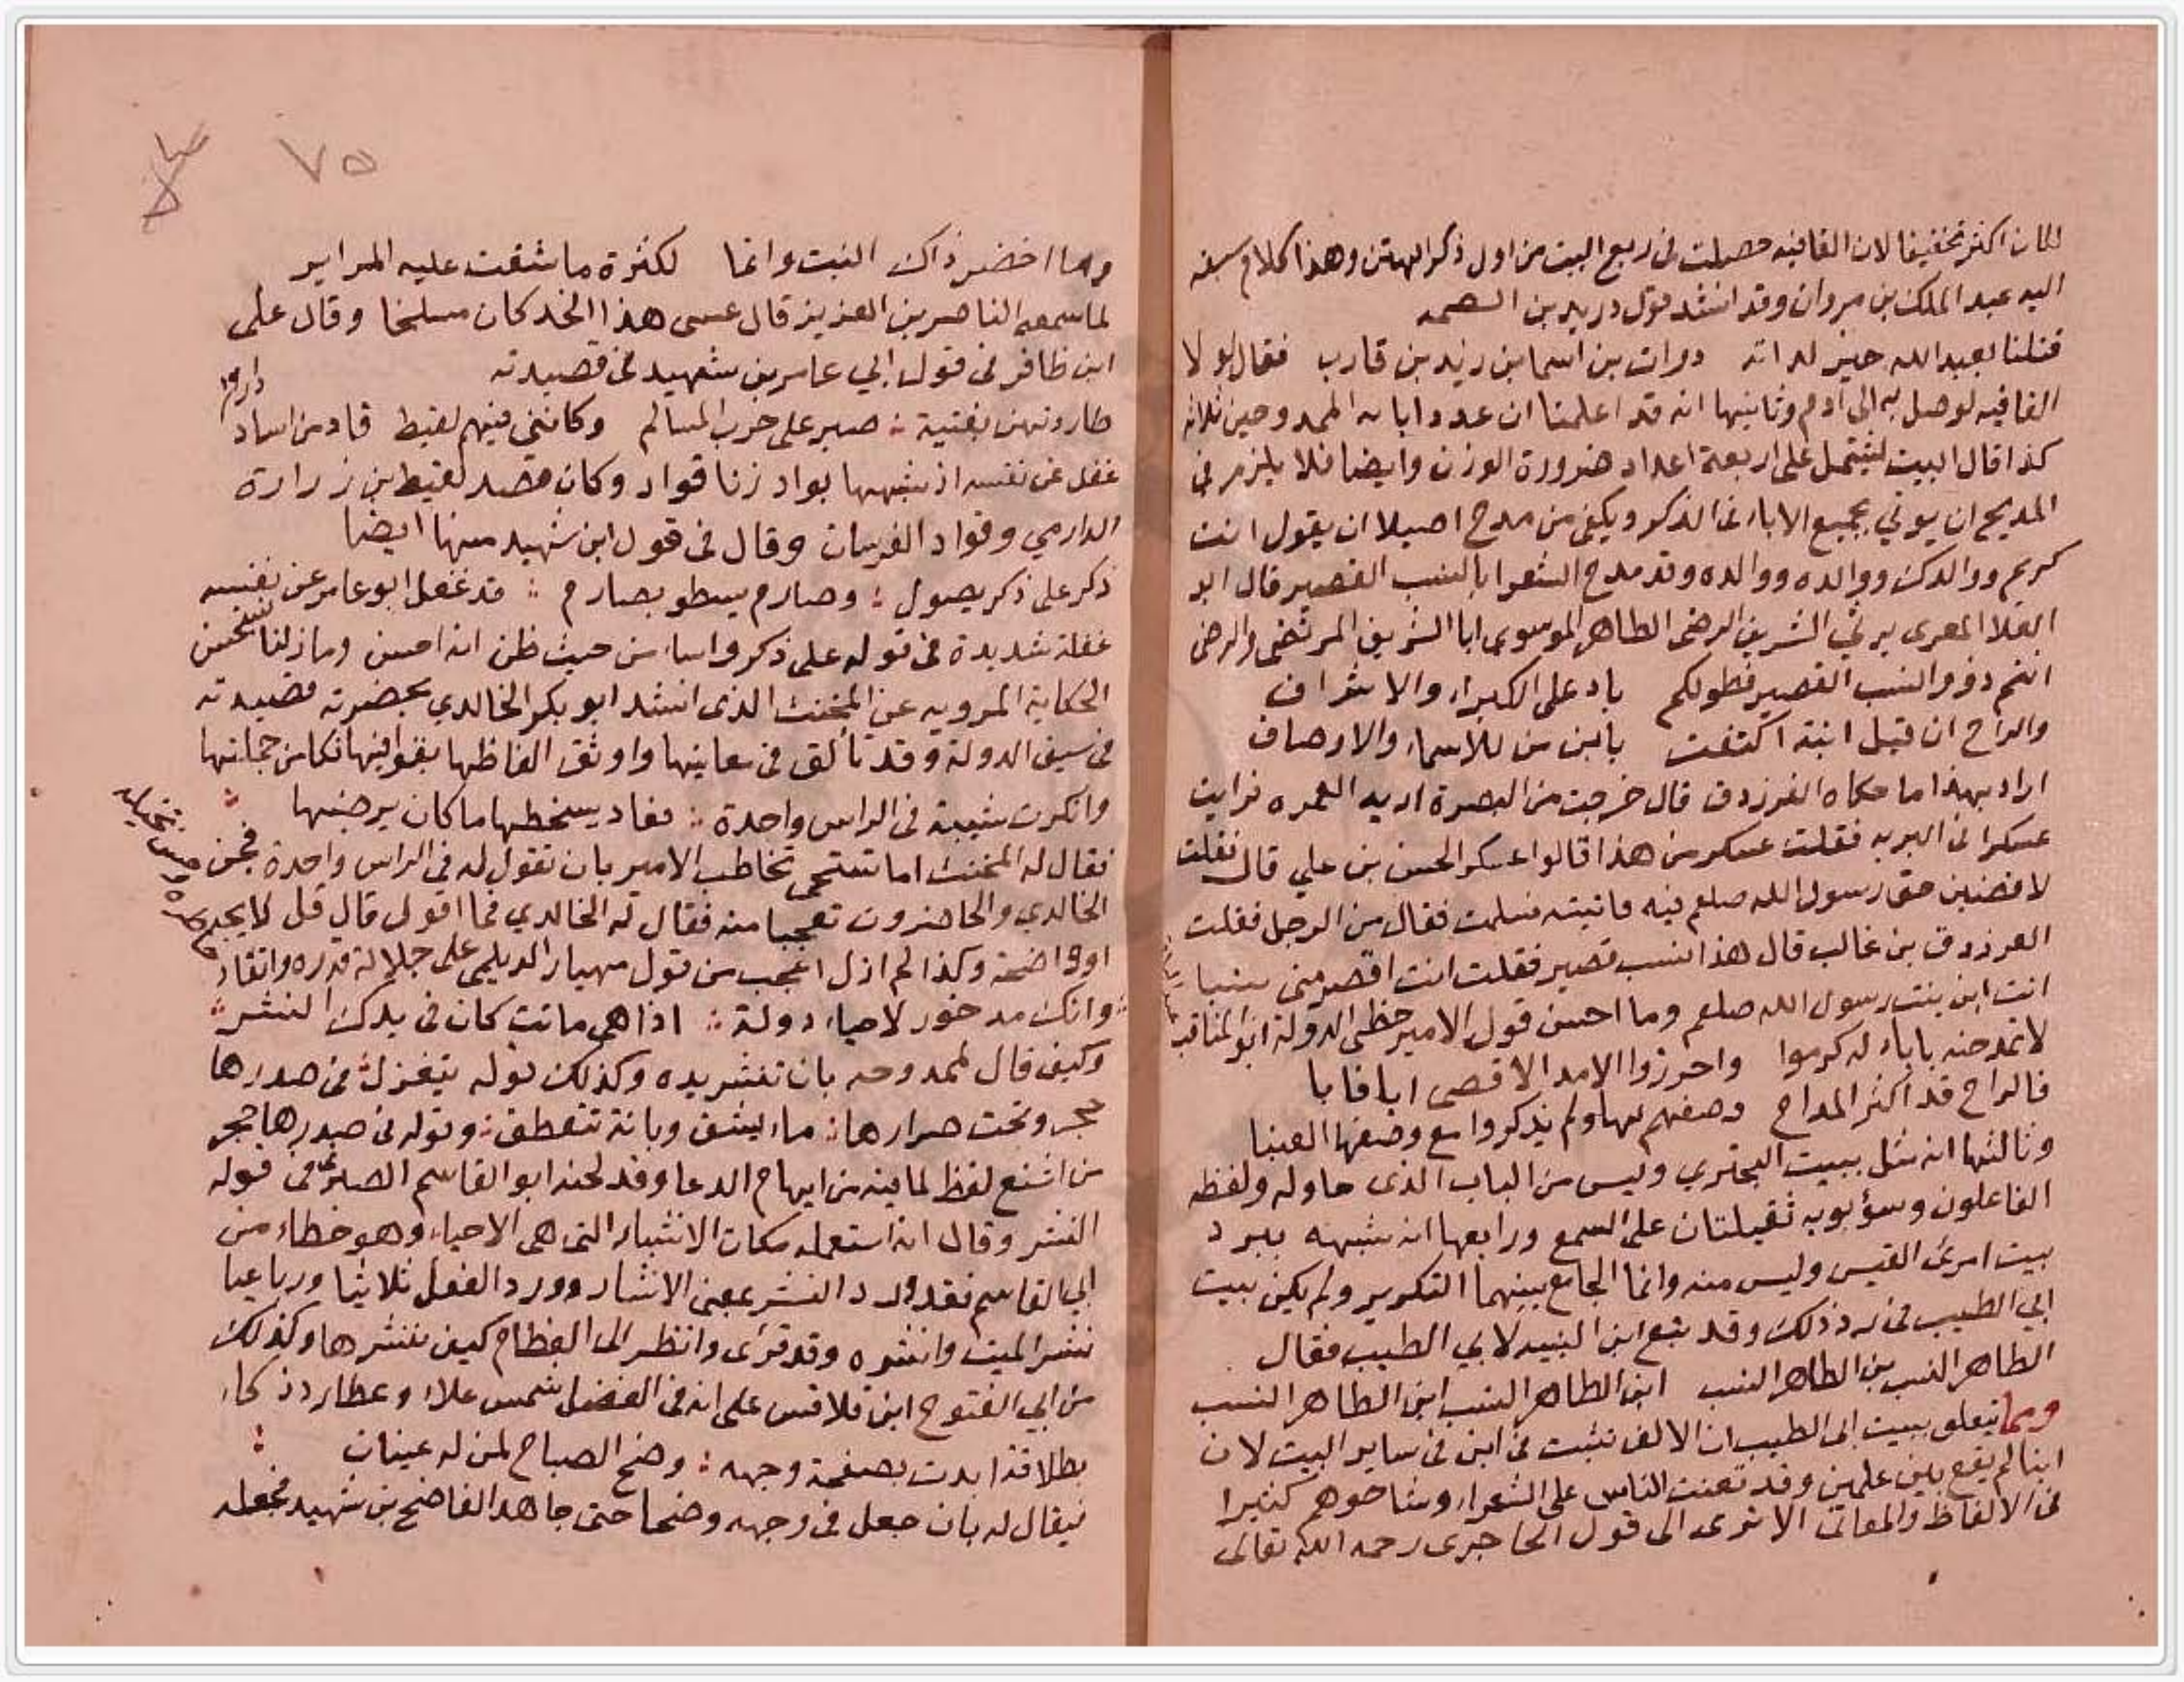 لكان اكثر تخفيفا لان القافيه حصلت في ربع البيت من اول ذكر الهتن وهذا كلام سبقه
اليه عبد الملك بن مروان وقد انشد قول دريد بن الصمه
قتلنا بعبد الله خير لداته ذواب بن اسما بن زيد بن قارب فقال لو لا
القافيه لوصل به الى آدم وثانيها انه قد اعلمنا ان عدد ابا الممدوحين ثلاثه
كذا قال البيت ليشتمل على اربعة اعداد ضرورة الوزن وايضا فلا يلزم في
المديح ان يوتي بجميع الابا في الذكر ويكفى من مدح اصيلا ان يقول انت
كريم ووالدك ووالده ووالده وقد مدح الشعرا بالنسب القصير قال ابو
العلا المعرى يرثي الشريف الرضى الطاهر الموسوي ابا الشريف المرتضى والرضى
انتم ذوو النسب القصير فطولكم باد على الكبراء والاشراف
والراح ان قيل ابنة اكتفت بابن من للاسماء والاوصاف
اراد بهذا ما حكاه الفرزدق قال خرجت من البصرة اريد العمره فرايت
عسكرا في البريه فقلت عسكر من هذا قالوا عسكر الحسن بن علي قال فقلت
لاقضين حق رسول الله صلعم فيه فاتيته فسلمت فقال من الرجل فقلت
الفرزدق بن غالب قال هذا نسب قصير فقلت انت اقصر منى نسبا
انت ابن بنت رسول الله صلعم وما احسن قول الامير حظى الدولة ابو المناقب
لا تمدحنه باباء له كرموا واحرزوا الامد الاقصى ابا فابا
فالراح قد اكثر المداح وصفهم لها ولم يذكروا مع وصفها العنبا
وثالثها انه مثل ببيت البحتري وليس من الباب الذى حاوله ولفظه
الفاعلون وسؤبوبه ثقيلتان على السمع ورابعها انه شبهه ببرد
بيت امرئ القيس وليس منه وانما الجامع بينهما التكرير ولم يكن بيت
ابي الطيب في برد ذلك وقد تبع ابن النبيه لابي الطيب فقال
الطاهر النسب بن الطاهر النسب ابن الطاهر النسب ابن الطاهر النسب
ومما يتعلق ببيت ابى الطيب ان الالف تثبت في ابن في ساير البيت لان
ابنا لم يقع بين علمين وقد تعنت الناس على الشعراء وشاحوهم كثيرا
في الالفاظ والمعاني الا ترى الى قول الحاجرى رحمه الله تعالى
٧٥
وما اخضر ذاك النبت وانما لكثرة ما شقت عليه المراير
لما سمعه الناصر بن العزيز قال عسى هذا الخد كان مسلخا وقال على
ابن ظافر في قول ابي عامر بن شهيد في قصيدته
طاردتهن بفتية صبر على حرب المسالم وكانني فيهم لقيط قاد من اساد
دارم
غفل عن نفسه اذ شبهها بواد زنا قواد وكان قصد لقيط بن زرارة
الدارمي وقواد الفرسان وقال في قول ابن شهيد منها ايضا
ذكر على ذكر يصول وصارم يسطو بصارم قد غفل ابو عامر عن نفسه
غفلة شديدة في قوله على ذكر واسا من حيث ظن انه احسن وما زلنا نستحسن
الحكاية المرويه عن المخنث الذى انشد ابو بكر الخالدي بحضرته قصيدته
في سيف الدولة وقد تألق في معاينها واوثق الفاظها بقوافيها فكان من جملتها
وانكرت شيبة في الراس واحدة فعاد يسخطها ما كان يرضيها
فقال له المخنث اما تستحى تخاطب الامير بان تقول له في الراس واحدة فجن
الخالدي والحاضرون تعجبا منه فقال له الخالدي فما اقول قال قل لايحة
او واضحة وكذا لم ازل اعجب من قول مهيار الديلمي على جلالة قدره وانقاد
وانك مدخور لاحياء دولة اذا هى ماتت كان في يدك النشر
وكيف قال لممدوحه بان تنشر يده وكذلك قوله يتغزل في صدرها
حجر وتحت صدارها ماء يشف وبانة تتعطف وقوله في صدرها حجر
من اشنع لفظ لما فيه من ايهام الدعا وقد لحنه ابو القاسم الصيرفي في قوله
النشر وقال انه استعمله مكان الانشار التى هى الاحياء وهو خطاء من
ابي القاسم فقد ورد النشر بمعنى الانشار وورد الفعل ثلاثيا ورباعيا
نشر الميت وانشره وقد قرئ وانظر الى العظام كيف ننشرها وكذلك
من ابي الفتوح ابن قلاقس على انه في الفضل شمس علاء وعطارد ذكاء
بطلاقة ابدت بصفحة وجهه وضح الصباح لمن له عينان
فيقال له بان جعل في وجهه وضحا حتى جا هذا الفاضح بن شهيد فجعله